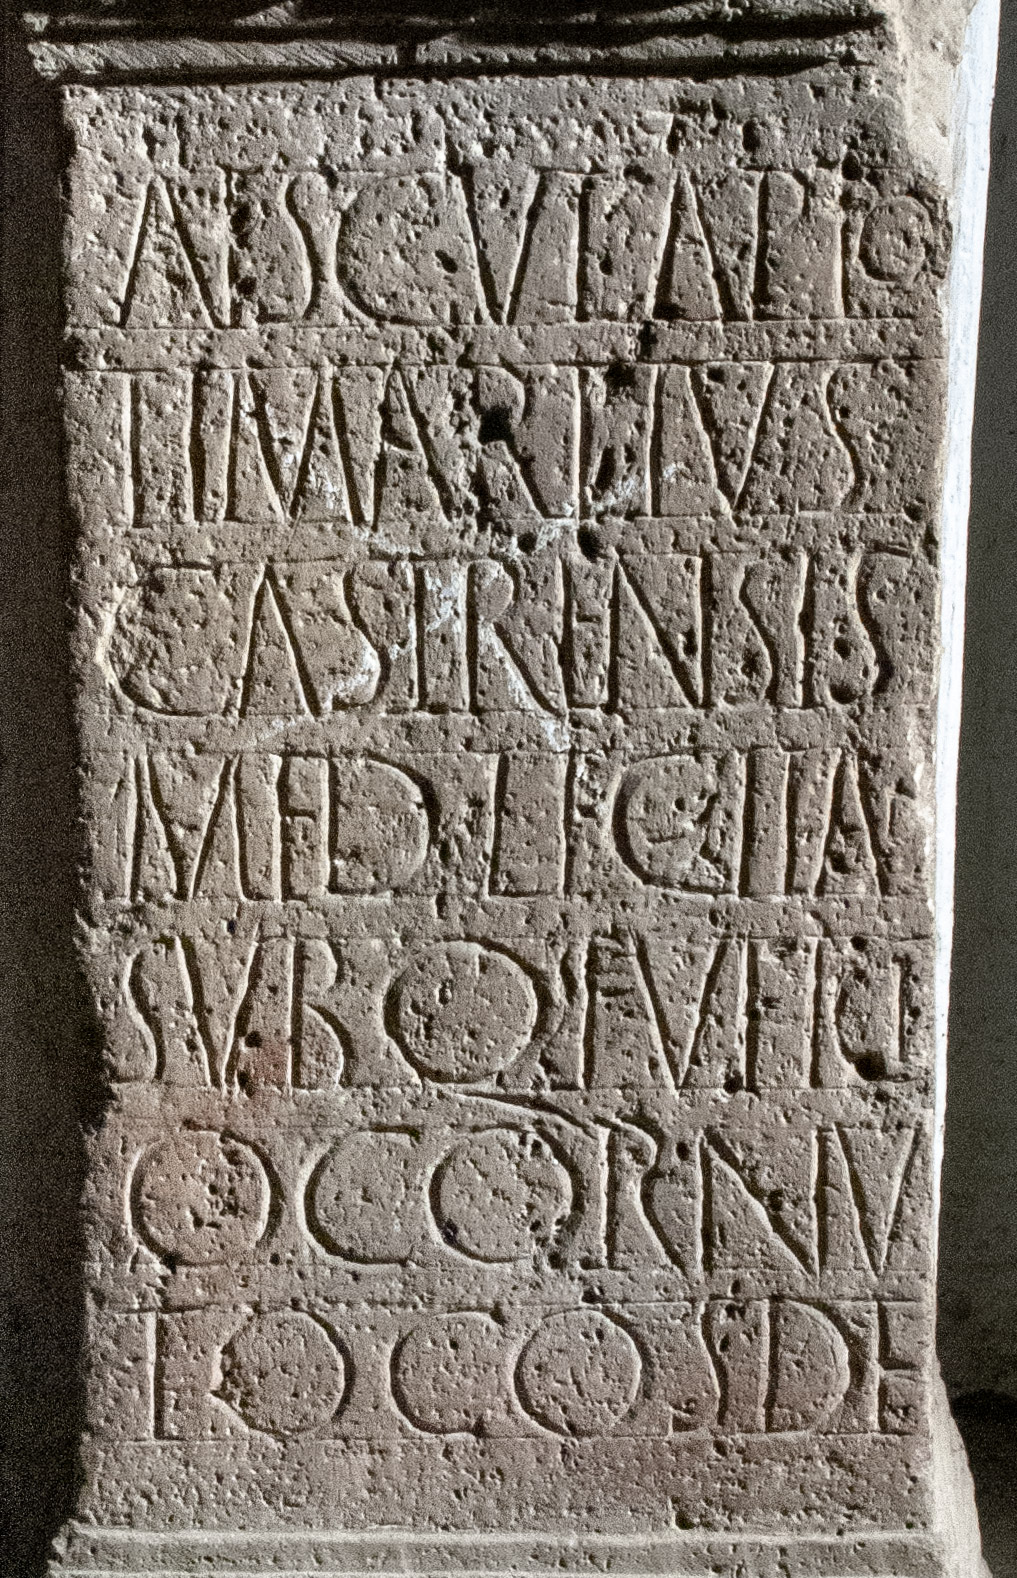 AESCVLAPIO
TI MARTIVS
CASTRENSIS
MED LEG II A
SVB Q FVFICI
O CORNV
TO COS DE